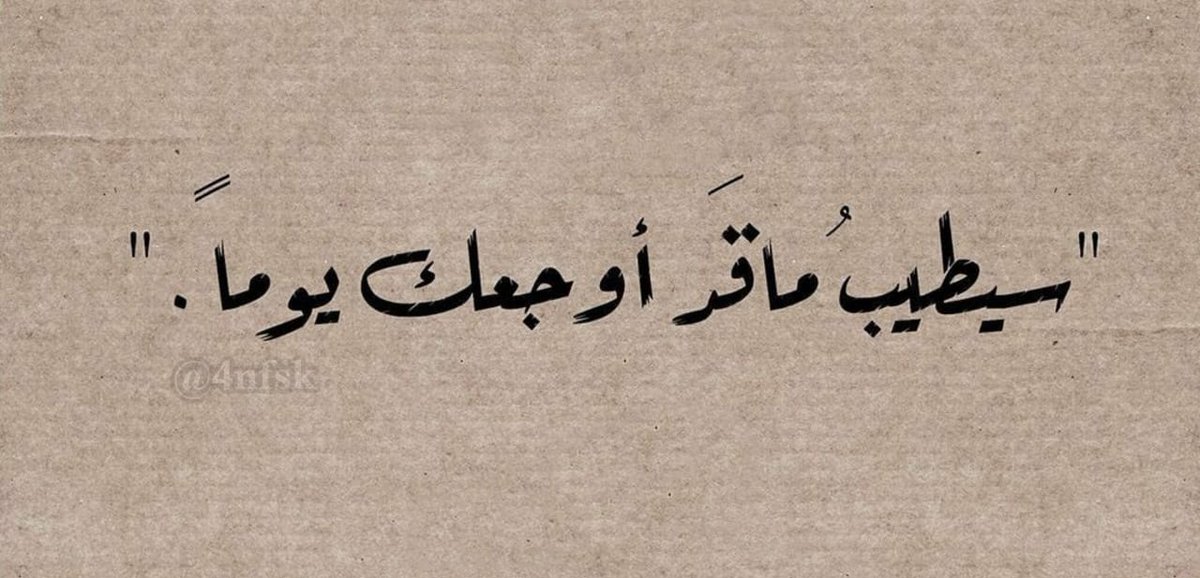 "سيطيبُ ماقَد أوجعك يوماً ."
@4nfsk